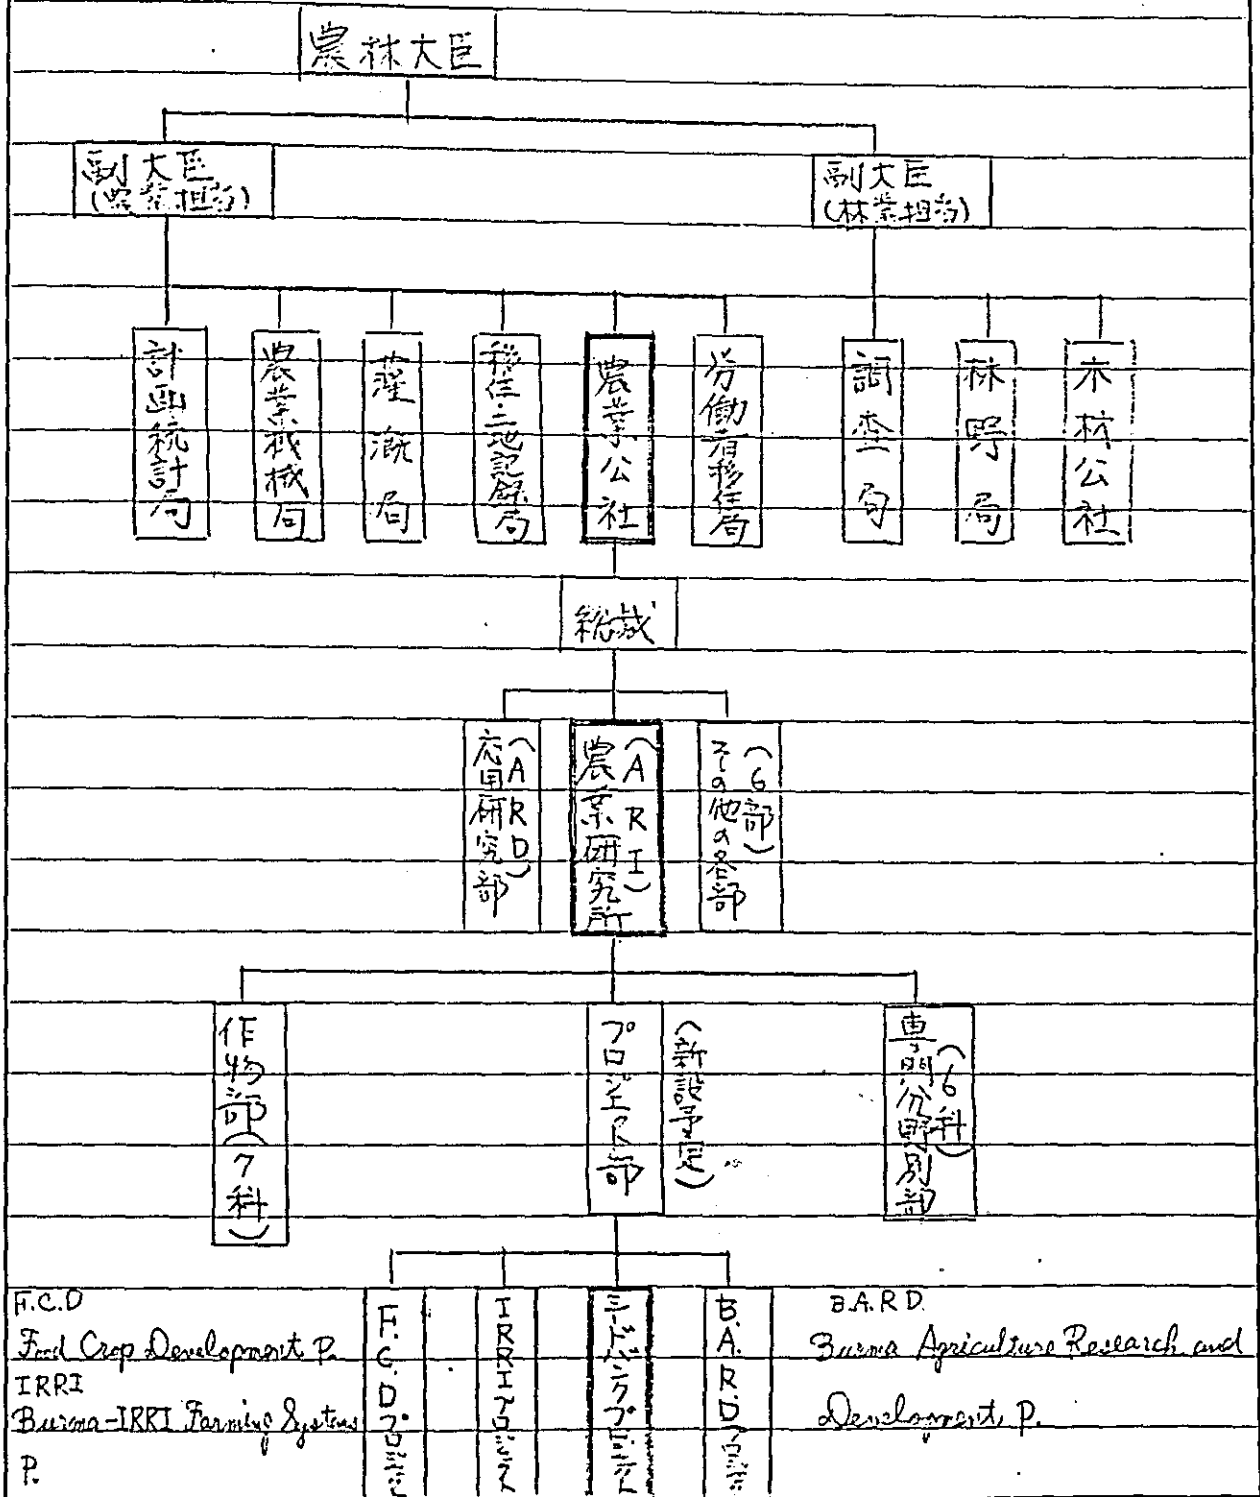 農林大臣
副大臣
(農業担当)
副大臣
(林業担当)
計画統計局
農業機械局
灌漑局
移住・土地記録局
農業公社
労働者移住局
調査局
林野局
木材公社
総裁
応用研究部
(ARD)
農業研究所
(ARI)
その他の各部
(6部)
作物部(7科)
プロジェクト部
(新設予定)
専門分野別部
(6科)
F.C.D
Food Crop Development P.
IRRI
Burma-IRRI Farming Systems
P.
F.C.Dプロジェクト
IRRIプロジェクト
シードバンクプロジェクト
B.A.R.Dプロジェクト
B.A.R.D.
Burma Agriculture Research and
Development P.